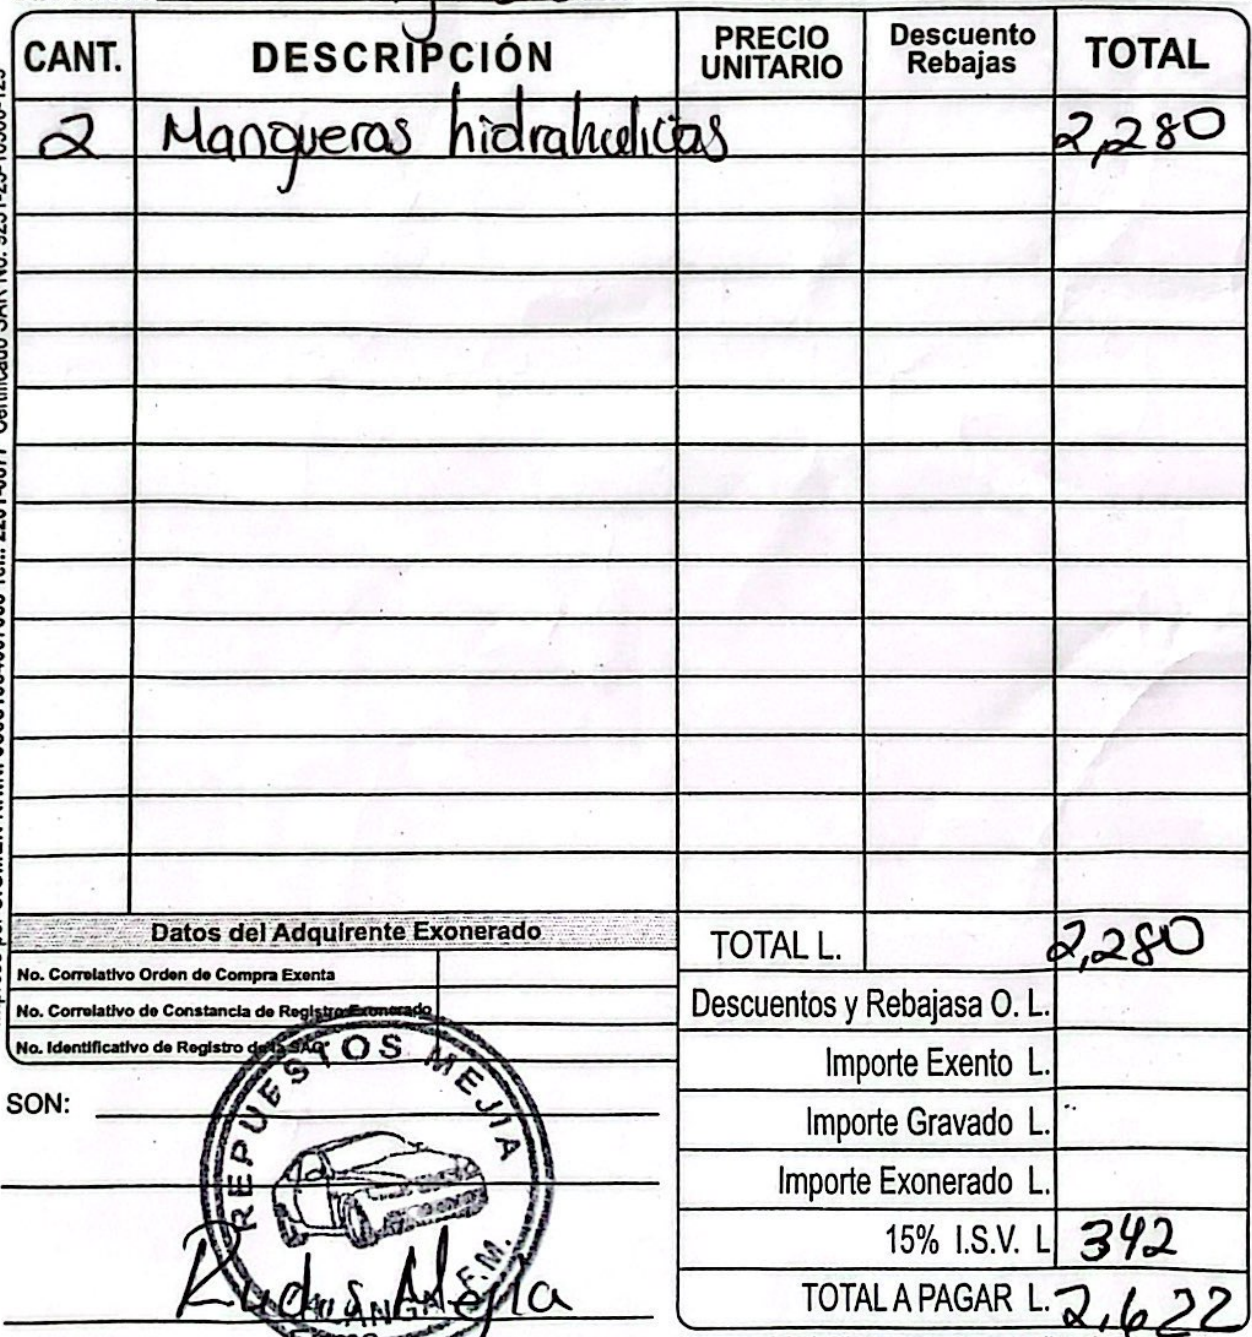 CANT. DESCRIPCIÓN PRECIO UNITARIO Descuento Rebajas TOTAL
2 Mangueras hidrahulicas 2,280
Datos del Adquirente Exonerado
No. Correlativo Orden de Compra Exenta
No. Correlativo de Constancia de Registro Exonerado
No. Identificativo de Registro de la SAG
TOTAL L. 2,280
Descuentos y Rebajasa O. L.
Importe Exento L.
Importe Gravado L.
Importe Exonerado L.
15% I.S.V. L 342
TOTAL A PAGAR L. 2,622
SON:
REPUESTOS MEJIA
F.M.